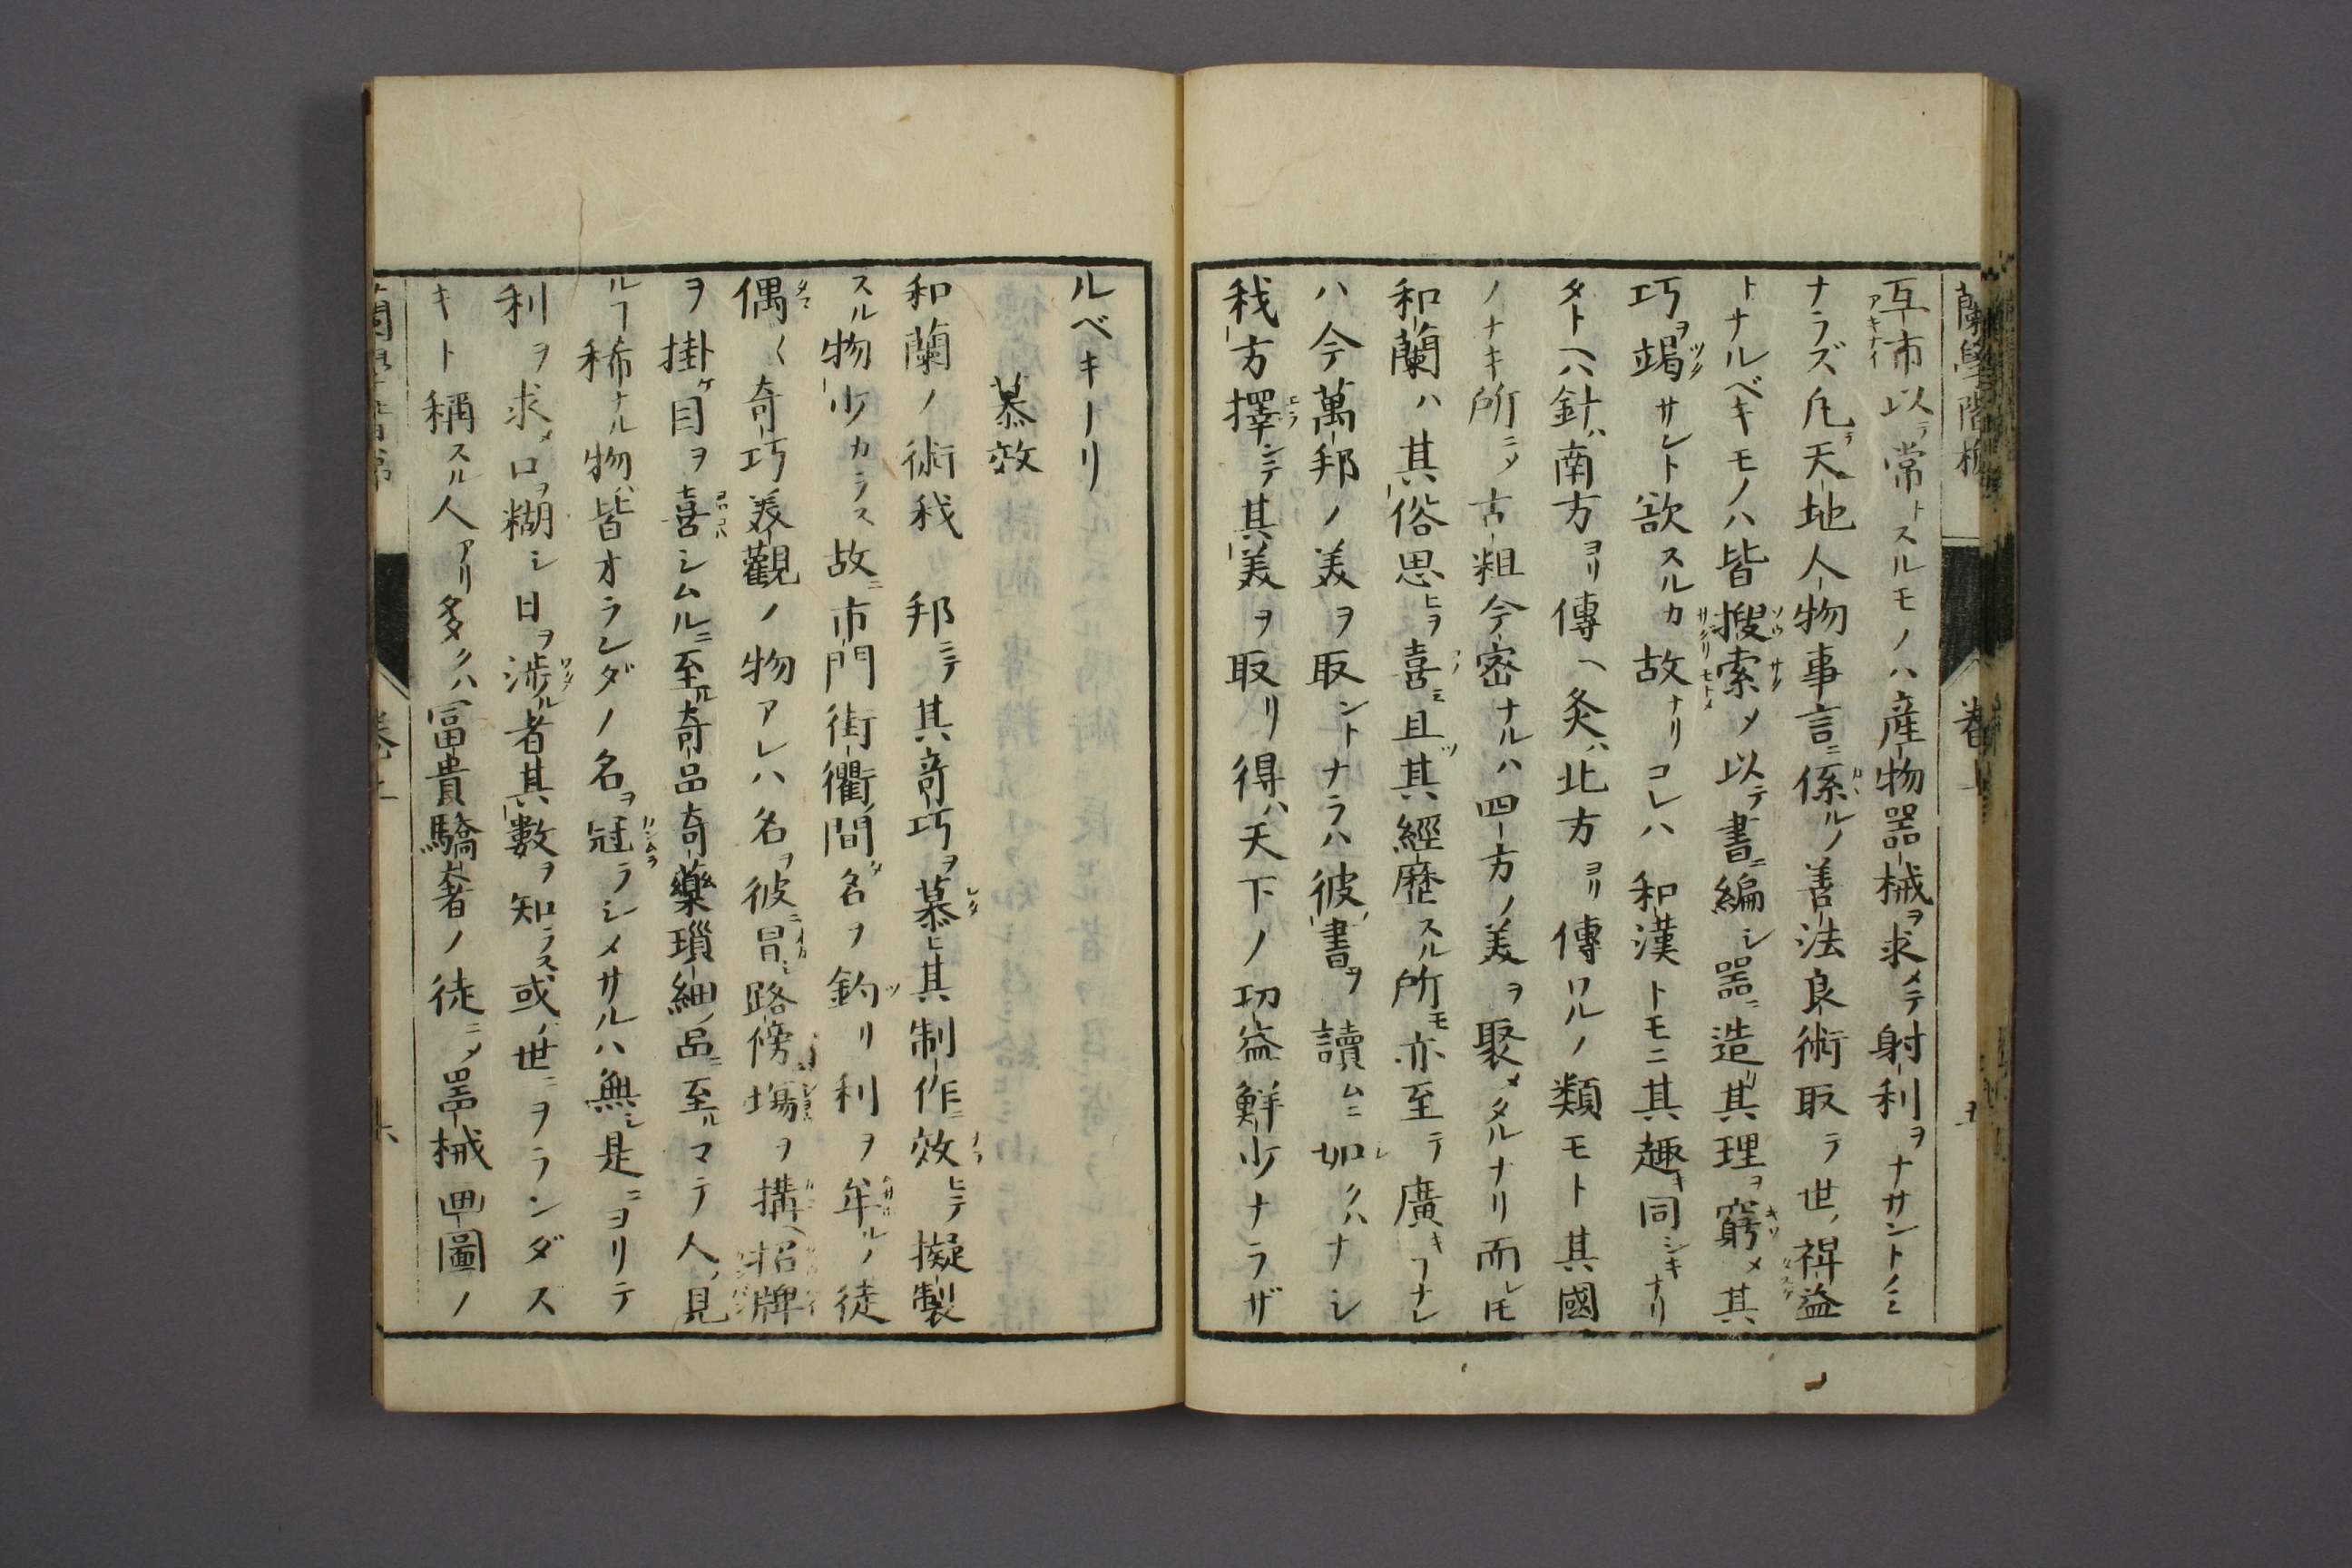 蘭學階梯 卷上 五
互市以テ常トスルモノハ産物器械ヲ求メテ射利ヲナサントノミ
ナラズ凡テ天地人物事言ニ係ルノ善法良術取テ世ノ裨益
トナルベキモノハ皆搜索メ以テ書ニ編シ器ニ造リ其理ヲ窮メ其
巧ヲ竭サレト欲スルカ故ナリコレハ和漢トモニ其趣キ同シキナリ
タトヘハ針ハ南方ヨリ傳ヘ灸ハ北方ヨリ傳ワルノ類モト其國
ノナキ所ニメ古粗今密ナルハ四方ノ美ヲ聚メタルナリ而レ𪜈
和蘭ハ其俗思ヒヲ喜ミ且ツ其經歴スル所モ亦至テ廣キヿナレ
ハ今萬邦ノ美ヲ取ントナラハ彼ノ書ヲ讀ムニ如クハナシ
我方擇ンテ其美ヲ取リ得ハ天下ノ功益鮮少ナラザ
ルベキナリ
慕效
和蘭ノ術我 邦ニテ其奇巧ヲ慕ヒ其制作ニ效ヒテ擬製
スル物少カラス故ニ市門街衢ノ間タ名ヲ釣リ利ヲ牟ルノ徒
偶〱奇巧美觀ノ物アレハ名ヲ彼ニ冒シ路傍塲ヲ搆ヘ招牌
ヲ掛ケ目ヲ喜シムルニ至ル奇品奇藥瑣細ノ品ニ至ルマテ人ノ見
ルヿ稀ナル物ハ皆オランダノ名ヲ冠ラシメサルハ無シ是ニヨリテ
利ヲ求メ口ヲ糊シ日ヲ渉ル者其數ヲ知ラス或ハ世ニヲランダズ
キト稱スル人アリ多クハ冨貴驕奢ノ徒ニメ器械畫圖ノ